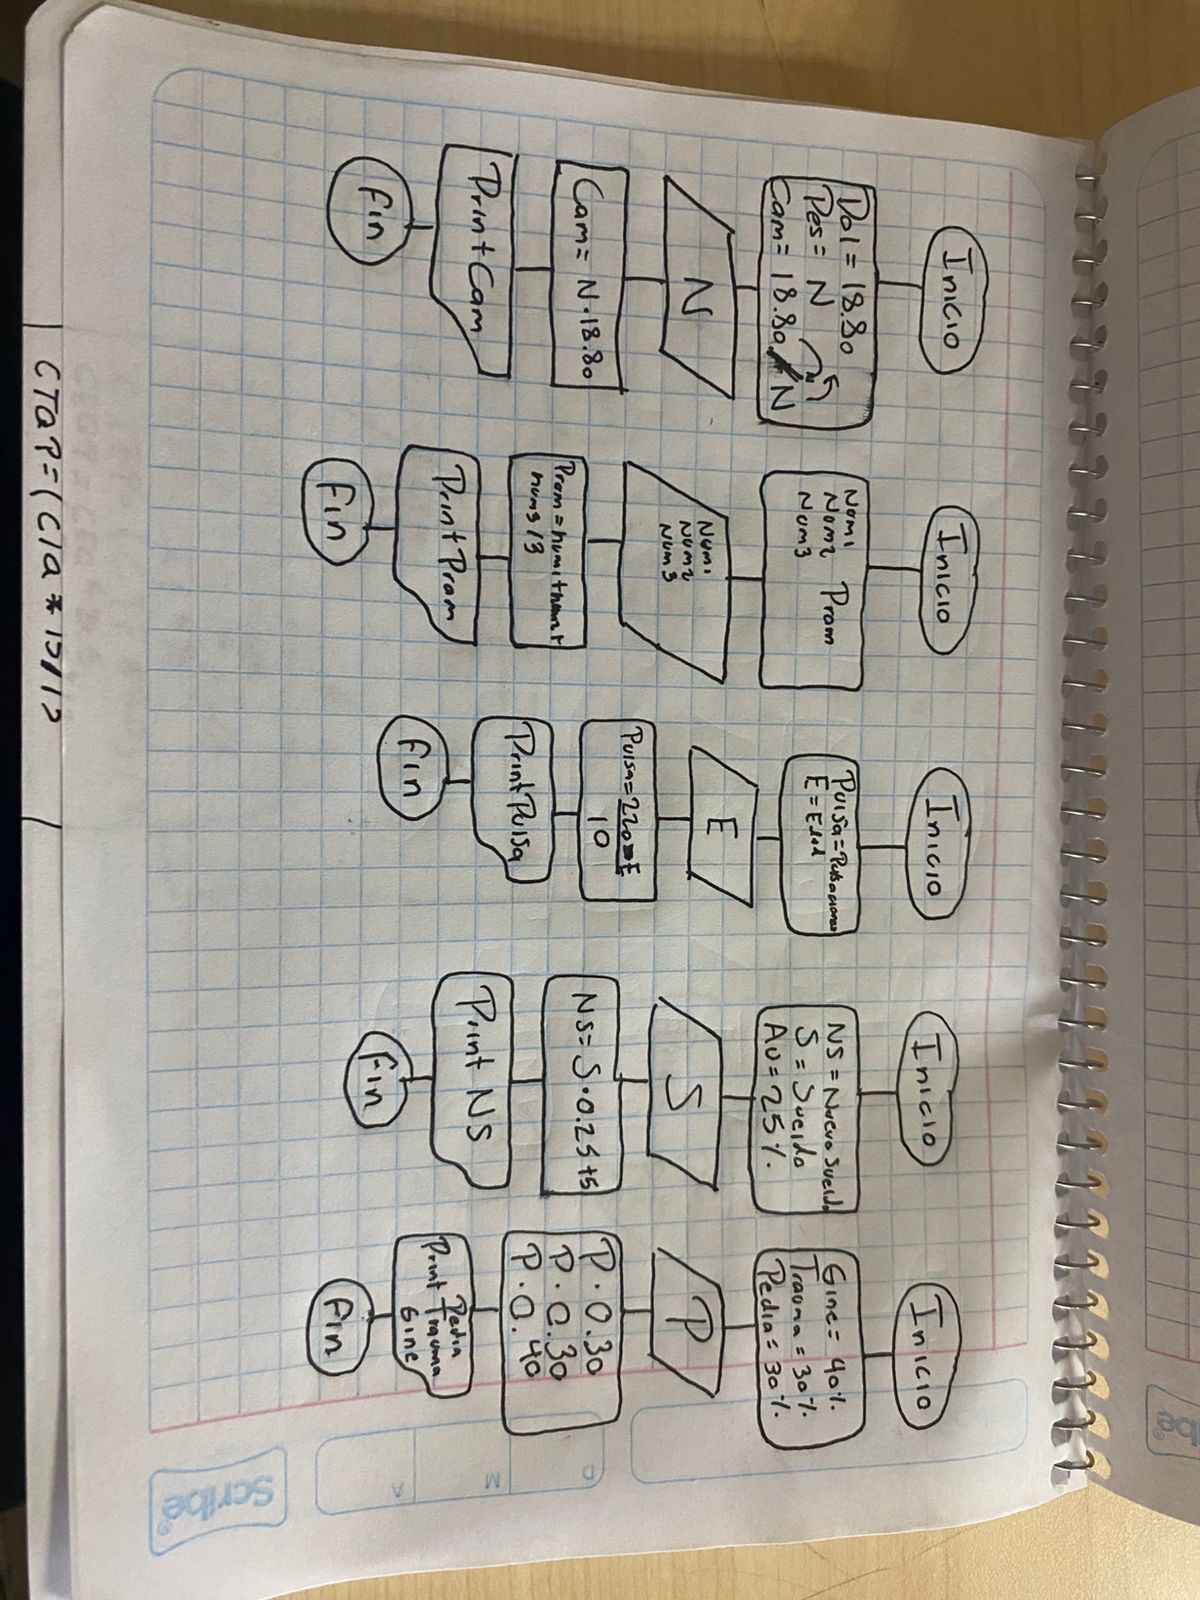 Inicio
Dol = 18.80
Pes = N
Cam = 18.80 * N
N
Cam = N · 18.80
Print Cam
Fin
Inicio
Num1
Num2 Prom
Num3
Num1
Num2
Num3
Prom = num1 + num +
num3 / 3
Print Prom
Fin
Inicio
Pulsa = Pulsaciones
E = Edad
E
Pulsa = 220 - E
10
Print Pulsa
Fin
Inicio
NS = Nuevo Sueldo
S = Sueldo
Au = 25%.
S
NS = S · 0.25 + S
Print NS
Fin
Inicio
Gine = 40%.
Trauma = 30%.
Pedia = 30%.
P
P · 0.30
P · 0.30
P · 0.40
Print Pedia
Trauma
Gine
Fin
D
M
A
Scribe